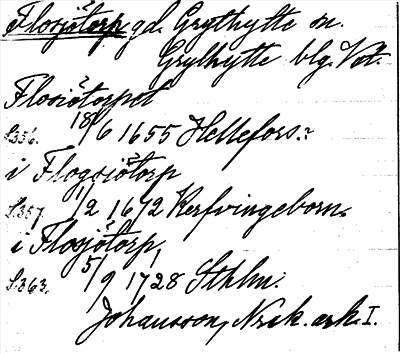 Flosjötorp gd. Grythytte sn.
Grythytte blg. Vstm.
Flosiötorpet
S.356. 18/6 1655 Hellefors.
i Flogsiötorp
S.357. 1/2 1672 Kerfvingeborn.
i Flosjötorp,
S.363. 5/9 1728 Sthlm.
Johansson, Nrik. ark. I.